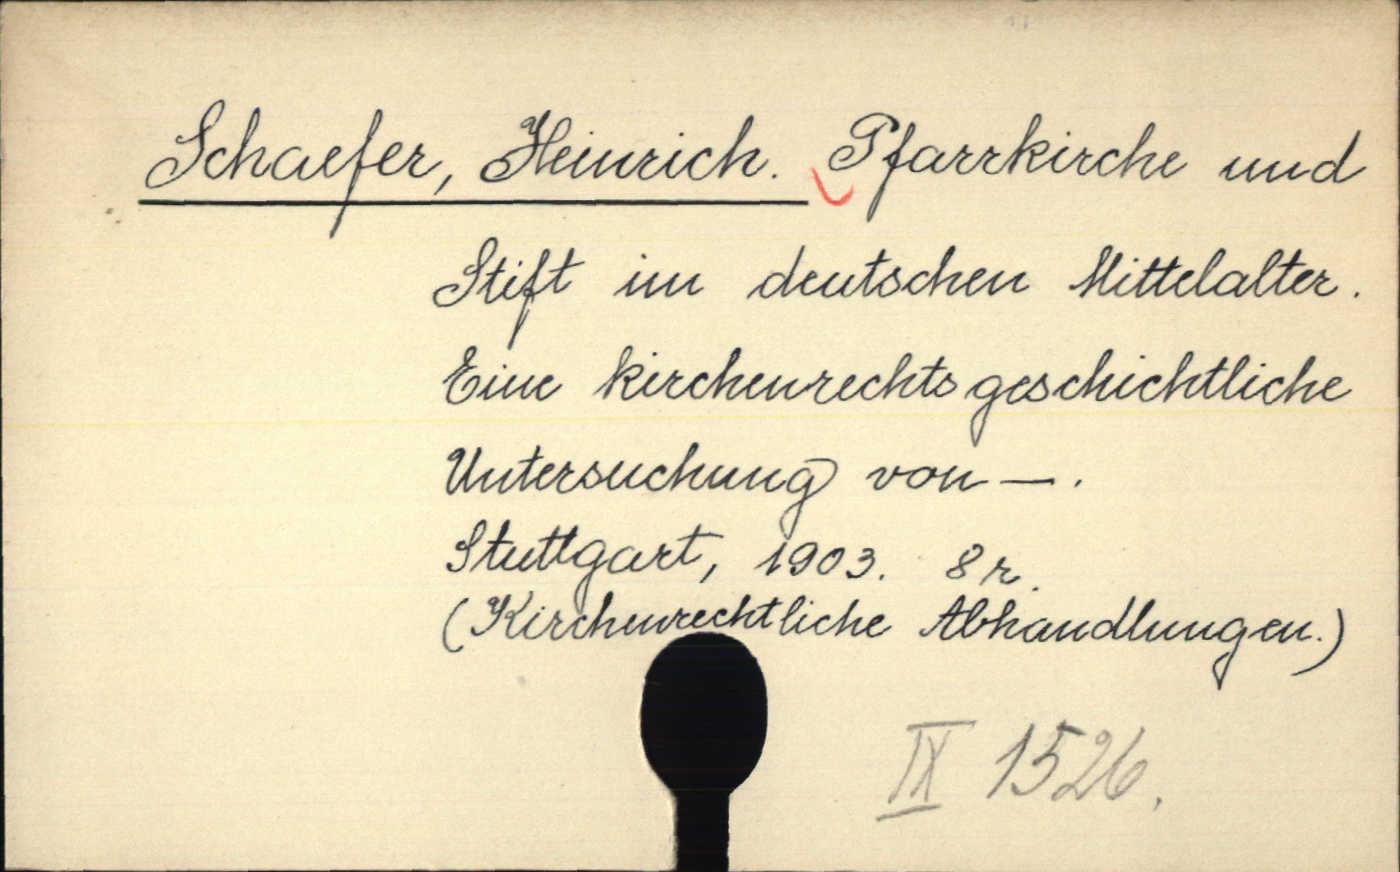 Schaefer, Heinrich. Pfarrkirche und
Stift im deutschen Mittelalter.
Eine kirchenrechtsgeschichtliche
Untersuchung von — .
Stuttgart, 1903. 8 r.
(Kirchenrechtliche Abhandlungen.)
IX 1526.